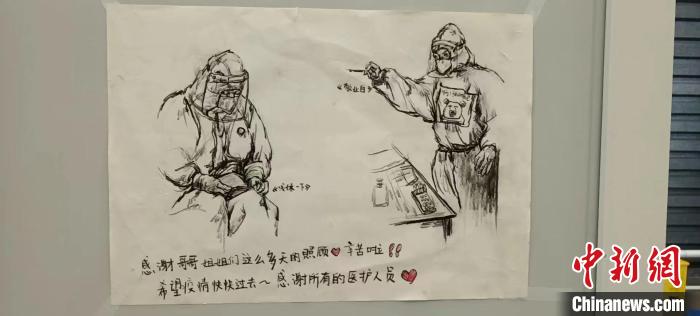 感谢哥哥姐姐们这么多天的照顾❤辛苦啦!!
希望疫情快快过去~ 感谢所有的医护人员❤
中新网
Chinanews.com